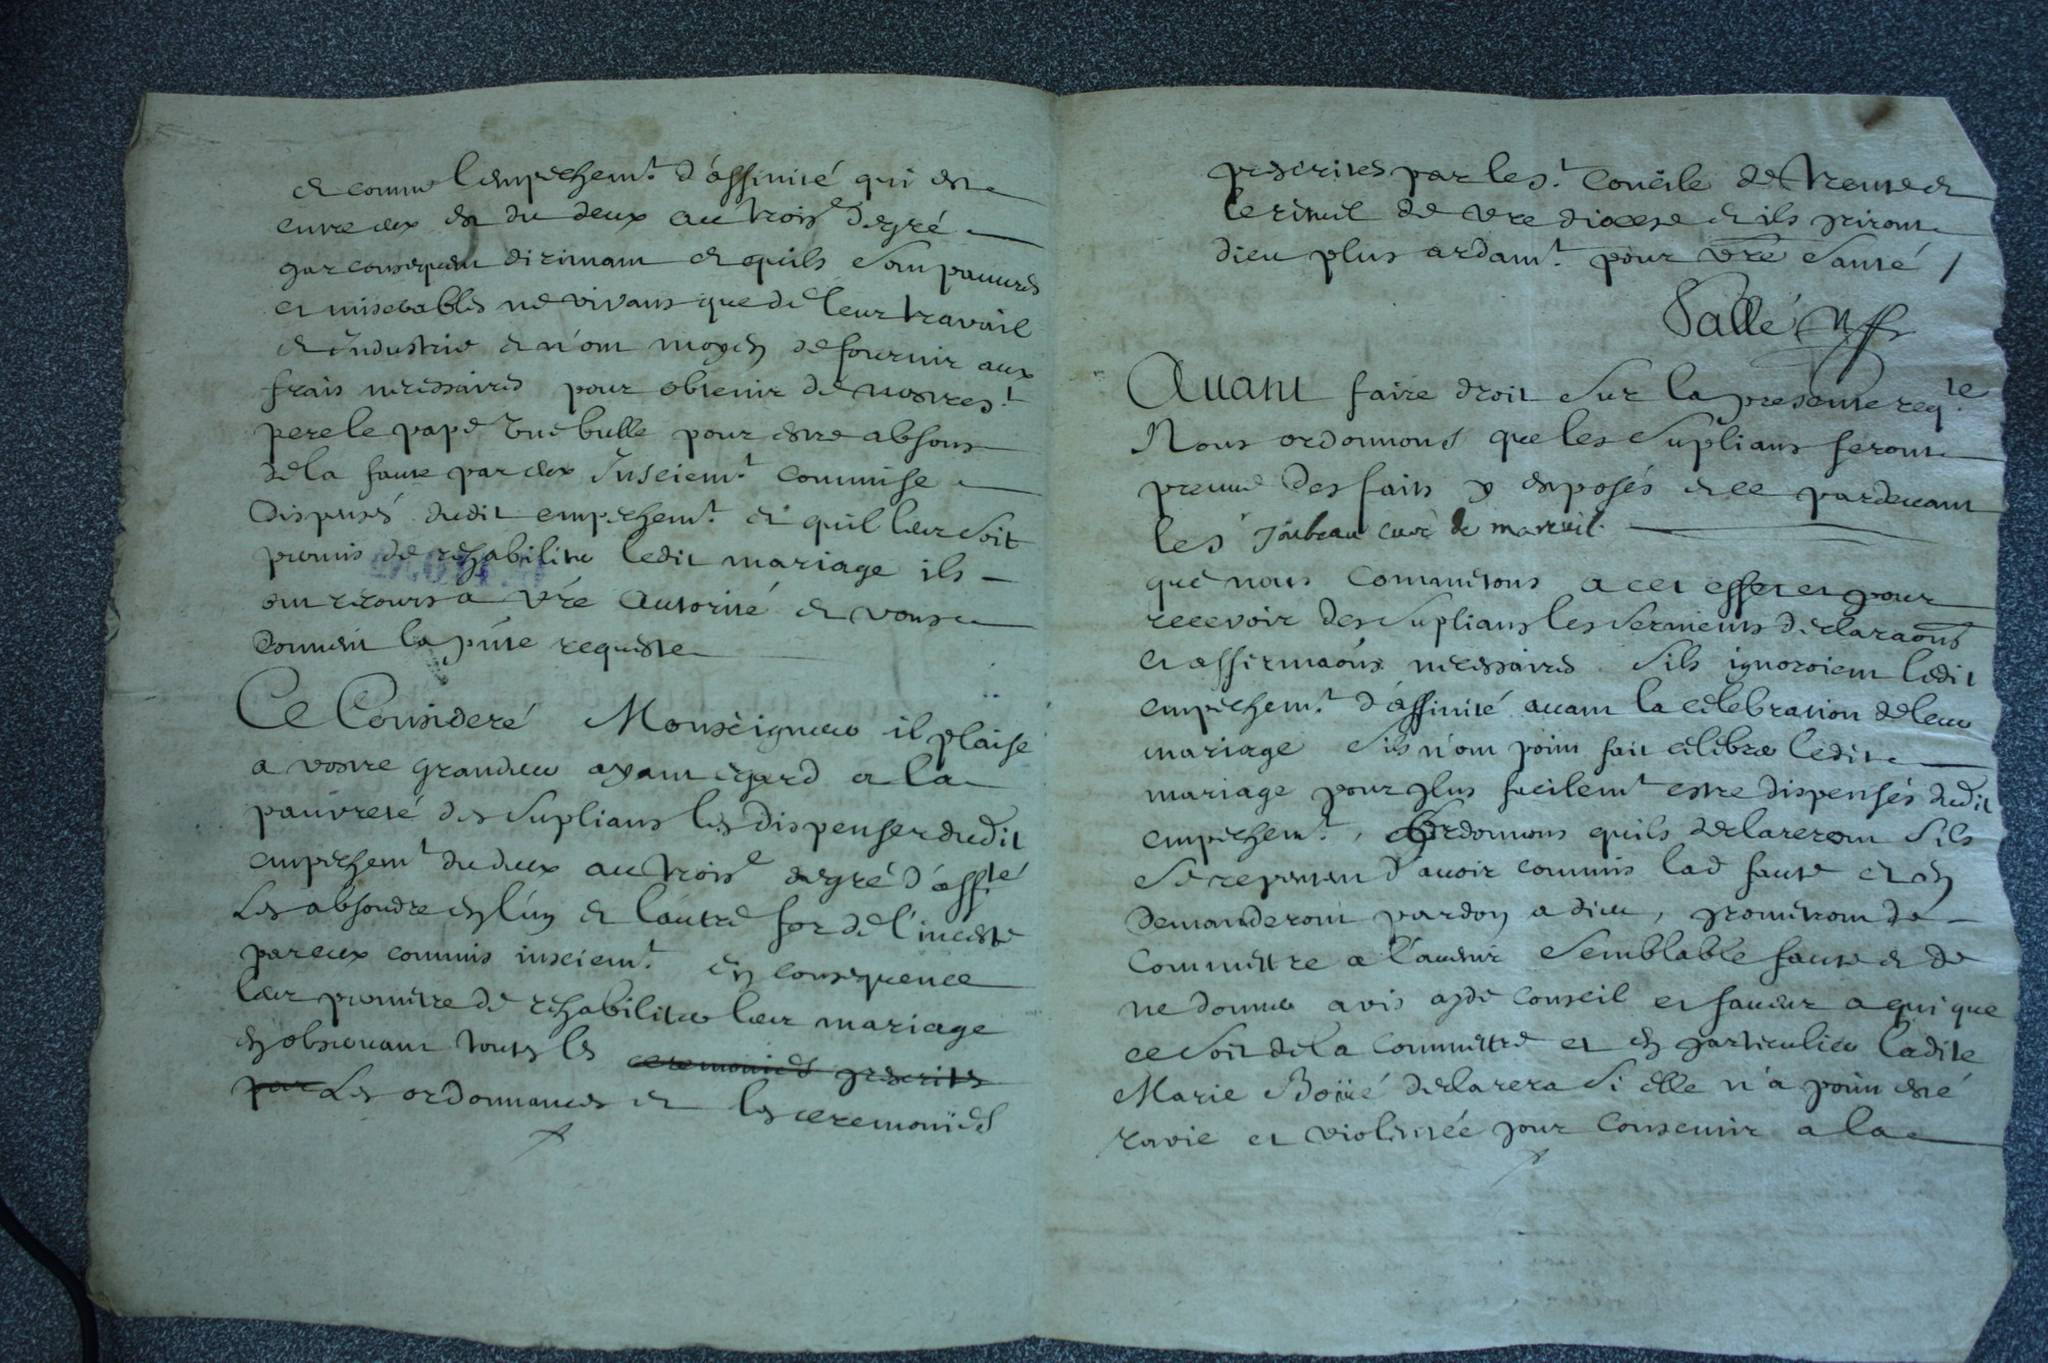 et comme lempechemt. d'affinité qui est
entre eux est du deux au troise degré
par consequent dirimant et quils sont pauvres
et miserables ne vivans que de leur travail
et industrie et n'ont moyen de fournir aux
frais necessaires pour obtenir de nostre st.
pere le pape une bulle pour estre absous
de la faute par eux insciemt. commise
dispensés dudit empechemt. et quil leur soit
permis de rehabiliter ledit mariage ils
ont recours a vre autorité et vous
donnent la pnte requeste
Ce Consideré Monseigneur il plaise
a vostre grandeur ayant egard a la
pauvreté des suplians les dispenser dudit
empechemt du deux au troise degré d'affté
Les absoudre en l'un et l'autre for de l'inceste
par eux commis insciemt. en consequence
leur permettre de rehabiliter leur mariage
en observant toutes les ceremonies prescrites
par Les ordonnances et les ceremonies
prescrites par le st. Concile de trente et
le rituel de vre diocese et ils priront
dieu plus ardamt. pour vre santé /
Pallé
Avant faire droit sur la presente reqte.
Nous ordonnons que les suplians feront
preuve des faits y exposés et ce pardevant
le sr Joubeau curé de mareuil.
que nous commettons a cet effet et pour
recevoir des suplians les serments declaraons
et affirmaons necessaires sils ignoroient ledit
empechemt. d'affinité avant la celebration de leur
mariage sils n'ont point fait celebrer ledit
mariage pour plus facilemt estre dispensés dudit
empechemt., Ordonnons quils declareront sils
se repentent d'avoir commis lad faute et en
demanderont pardon a dieu, promettront de
Committre a l'avenir semblable faute et de
ne donner avis ayde conseil et faveur a qui que
ce soit de la committre et en particulier ladite
Marie Boüé declarera si elle n'a point esté
ravie et violentée pour consentir a la